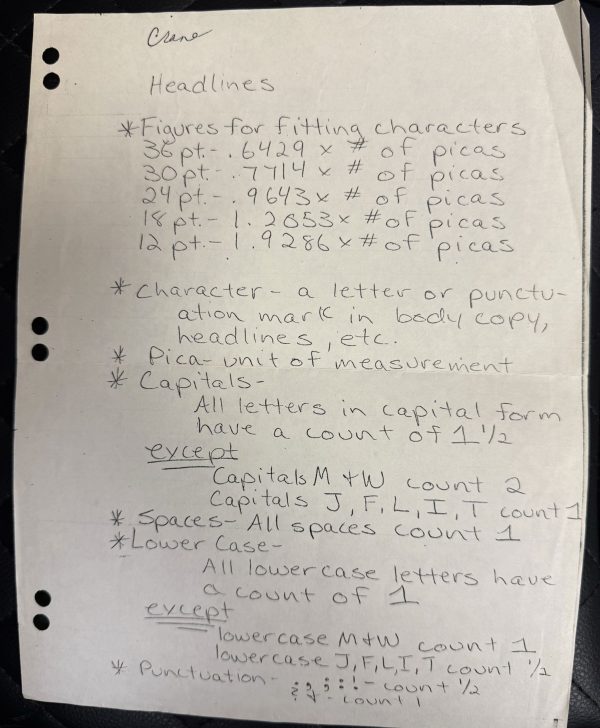 Crane
Headlines
*Figures for fitting characters
36 pt. - .6429 x # of picas
30 pt. - .7714 x # of picas
24 pt. - .9643 x # of picas
18 pt. - 1.2853 x # of picas
12 pt. - 1.9286 x # of picas
* Character - a letter or punctu-
ation mark in body copy,
headlines, etc.
* Pica - unit of measurement
* Capitals -
All letters in capital form
have a count of 1 1/2
except
Capitals M + W count 2
Capitals J, F, L, I, T count 1
* Spaces - All spaces count 1
*Lower Case -
All lowercase letters have
a count of 1
except
lowercase M + W count 1
lowercase J, F, L, I, T count 1/2
* Punctuation -
. , ; : ! - count 1/2
- count 1